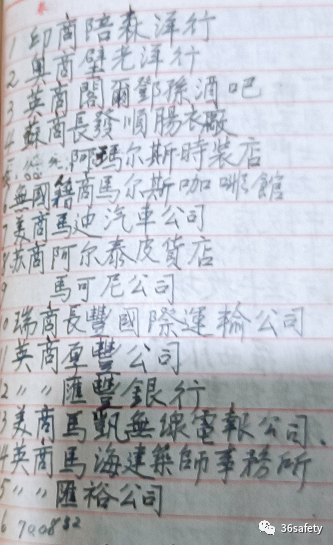 1 印商陪森洋行
2 奥商壁光洋行
3 英商閣爾鄧酒吧
4 蘇商長發順腸衣廠
阿瑪尔斯時裝店
無國籍商馬尔斯咖啡館
7 美商馬迪汽車公司
8 苏商阿尔泰皮貨店
9 馬可尼公司
10 瑞商長豐國際運輸公司
11 英商厚豐公司
2 〃 〃 匯豐銀行
3 美商馬凱無線電報公司.
4 英商馬海建築師事務所
5 〃 〃 匯裕公司
6
36safety